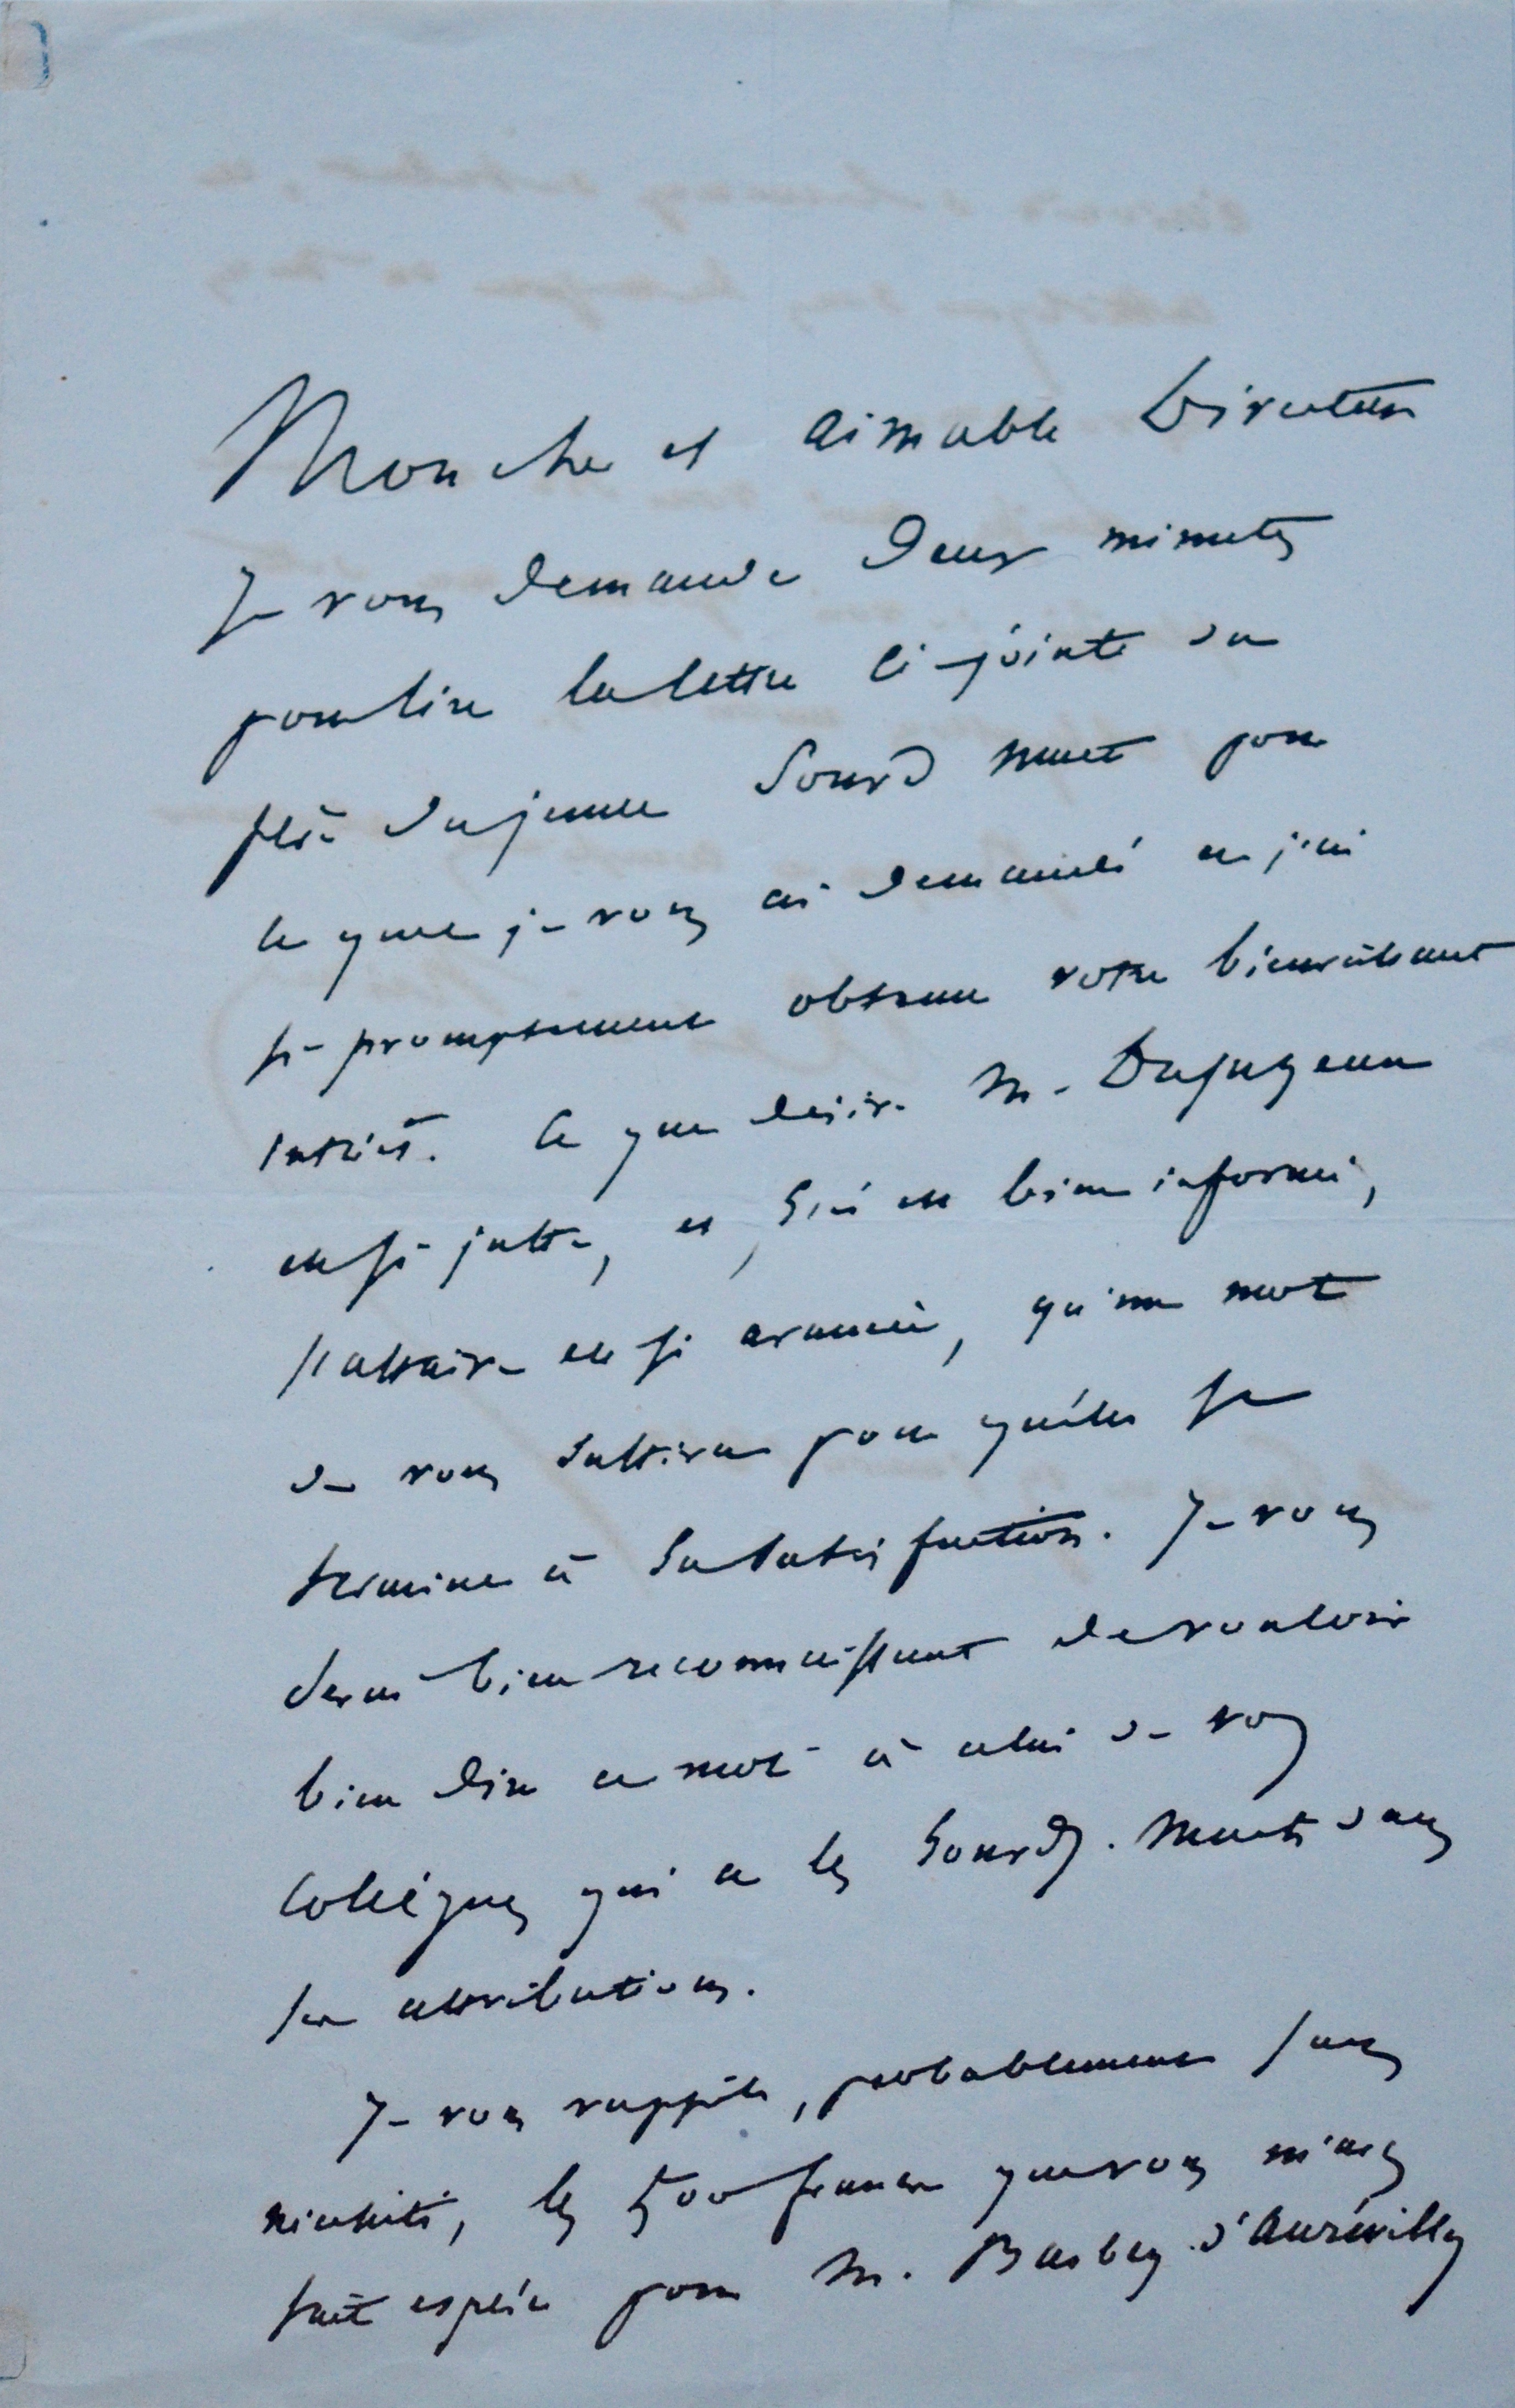 Mon cher et aimable Directeur
Je vous demande deux minutes
pour lire la lettre ci-jointe du
père du jeune Sourd muet pour
le quel je vous ai demandé et j'ai
si promptement obtenu votre bienveillant
intérêt. Ce que desire M. Dufugeau
est si juste, et, s'il est bien informé,
l'affaire est si avancée, qu'un mot
de vous suffira pour qu'elle se
termine à sa satisfaction. Je vous
serai bien reconnaissant de vouloir
bien dire ce mot à celui de vos
collègues qui a les Sourds-Muets dans
ses attributions.
Je vous rappelle, probablement sans
nécessité, les 500 francs que vous m'avez
fait espérer pour M. Barbey d'Aurévilly